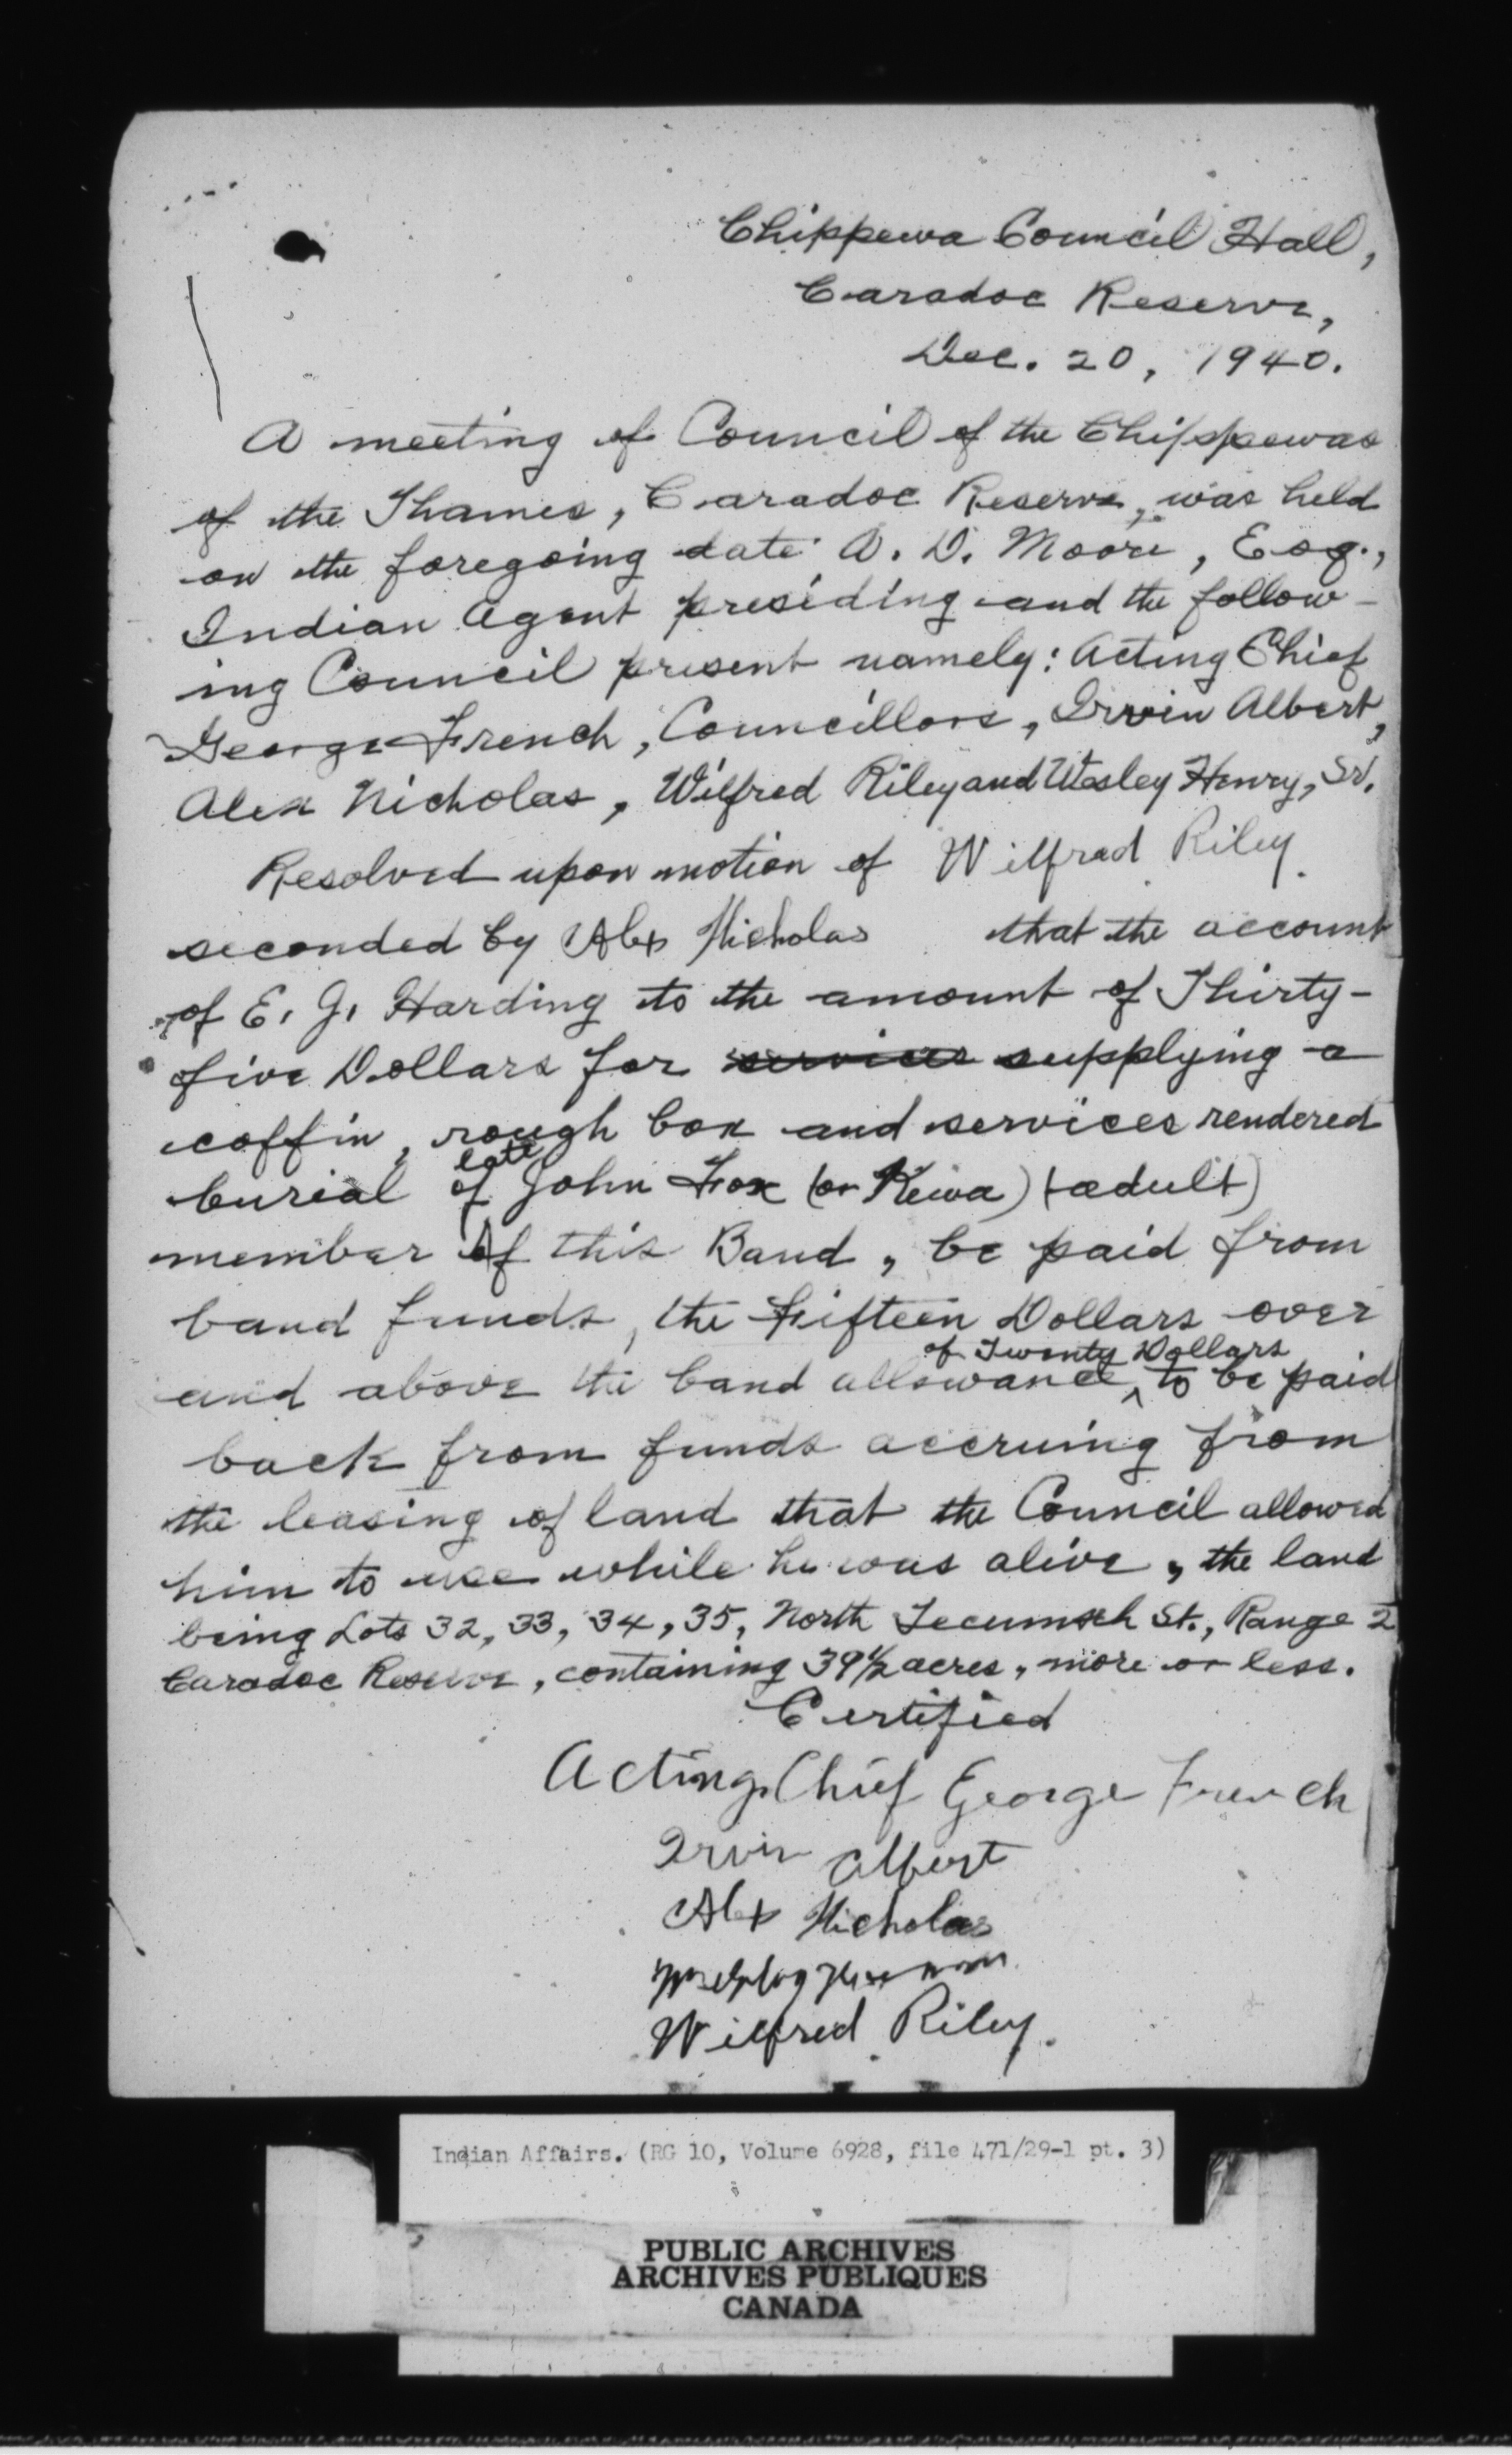 Chippewa Council Hall,
Caradoc Reserve,
Dec. 20, 1940.
A meeting of Council of the Chippewas
of the Thames, Caradoc Reserve, was held
on the foregoing date A. D. Moore, Esq.,
Indian Agent presiding and the follow-
ing Council present namely: Acting Chief
George French, Councillors, Irvin Albert,
Alex Nicholas, Wilfred Riley and Wesley Henry, Sr.
Resolved upon motion of Wilfred Riley
seconded by Alex Nicholas that the account
of E. J. Harding to the amount of Thirty-
five Dollars for services supplying a
coffin, rough box and services rendered
late
burial of John Fox (or Kewa) (adult)
member of this Band, be paid from
band funds, the Fifteen Dollars over
of Twenty Dollars
and above the band allowance, to be paid
back from funds accruing from
the leasing of land that the Council allowed
him to use while he was alive, the land
being Lots 32, 33, 34, 35, North Tecumseh St., Range 2
Caradoc Reserve, containing 39 1/2 acres, more or less.
Certified
Acting Chief George French
Irvin Albert
Alex Nicholas
Wilfred Riley.
Indian Affairs. (RG 10, Volume 6928, file 471/29-1 pt. 3)
PUBLIC ARCHIVES
ARCHIVES PUBLIQUES
CANADA